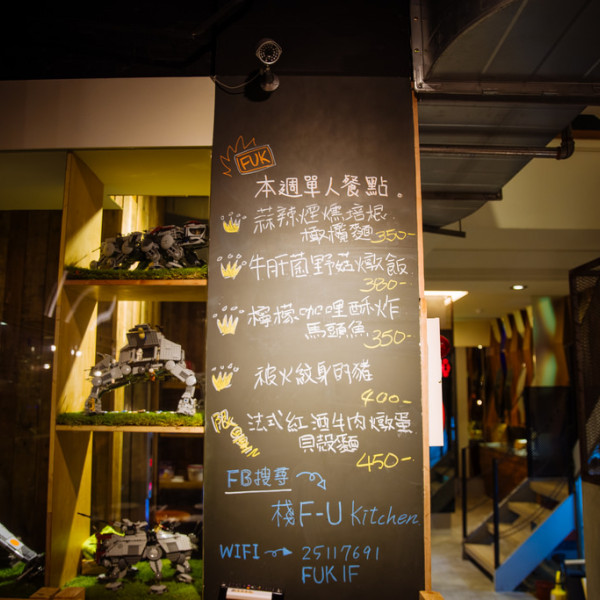 FUK
本週單人餐點。
蒜辣煙燻培根
橄欖麵 350-
牛肝菌野菇燉飯
380-
檸檬咖哩酥炸
馬頭魚 350-
被火紋身的豬
400-
法式紅酒牛肉燉蛋
貝殼麵
450-
FB搜尋
棧 F-U Kitchen
WIFI 25117691
FUK IF